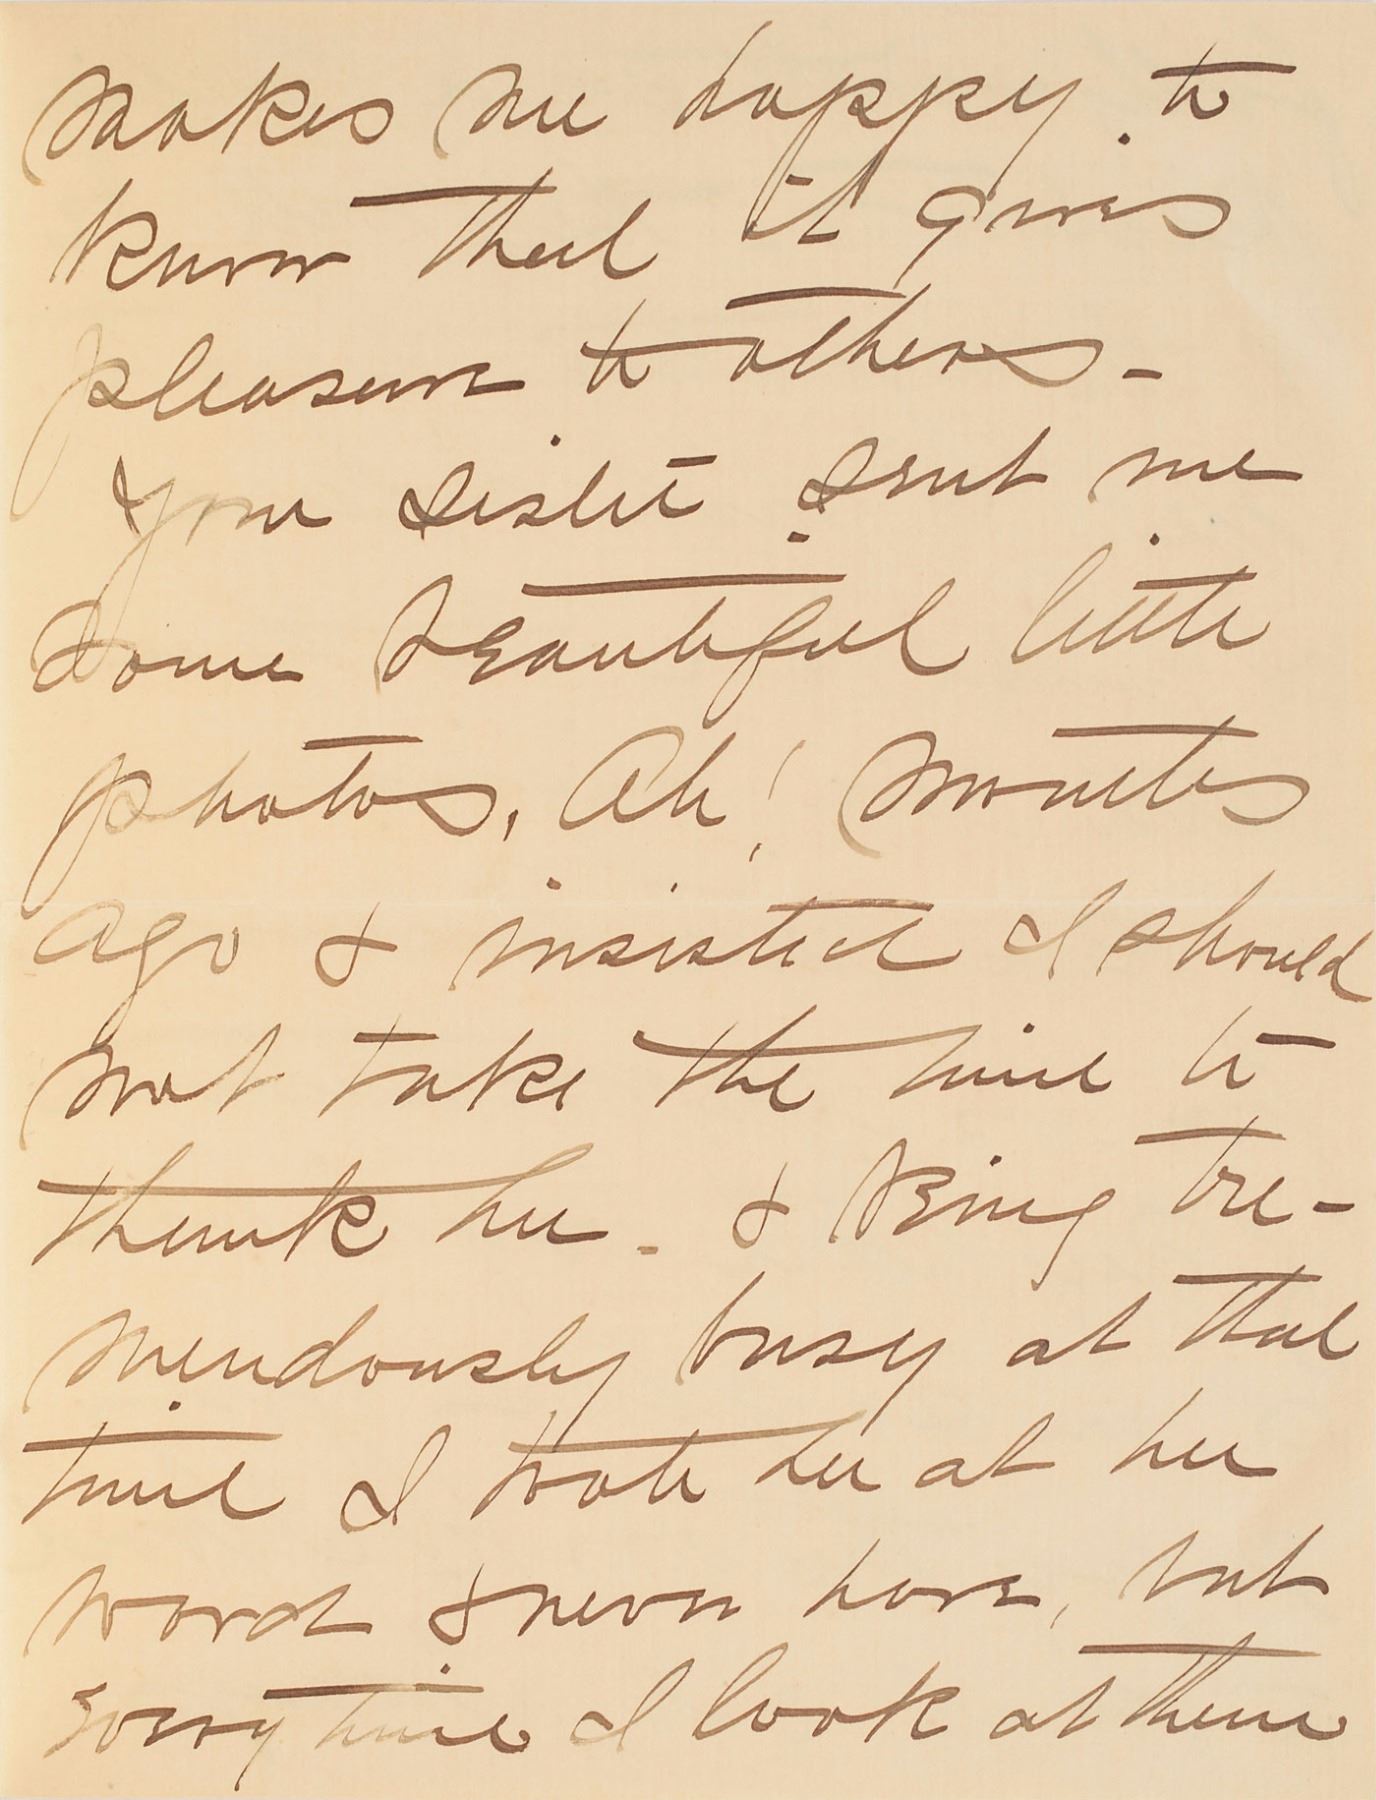 makes me happy to
know that it gives
pleasure to others -
Your sister sent me
some beautiful little
photos, Ah! months
ago & insisted I should
not take the time to
thank her - & being tre-
mendously busy at that
time I took her at her
word & never have, but
every time I look at them